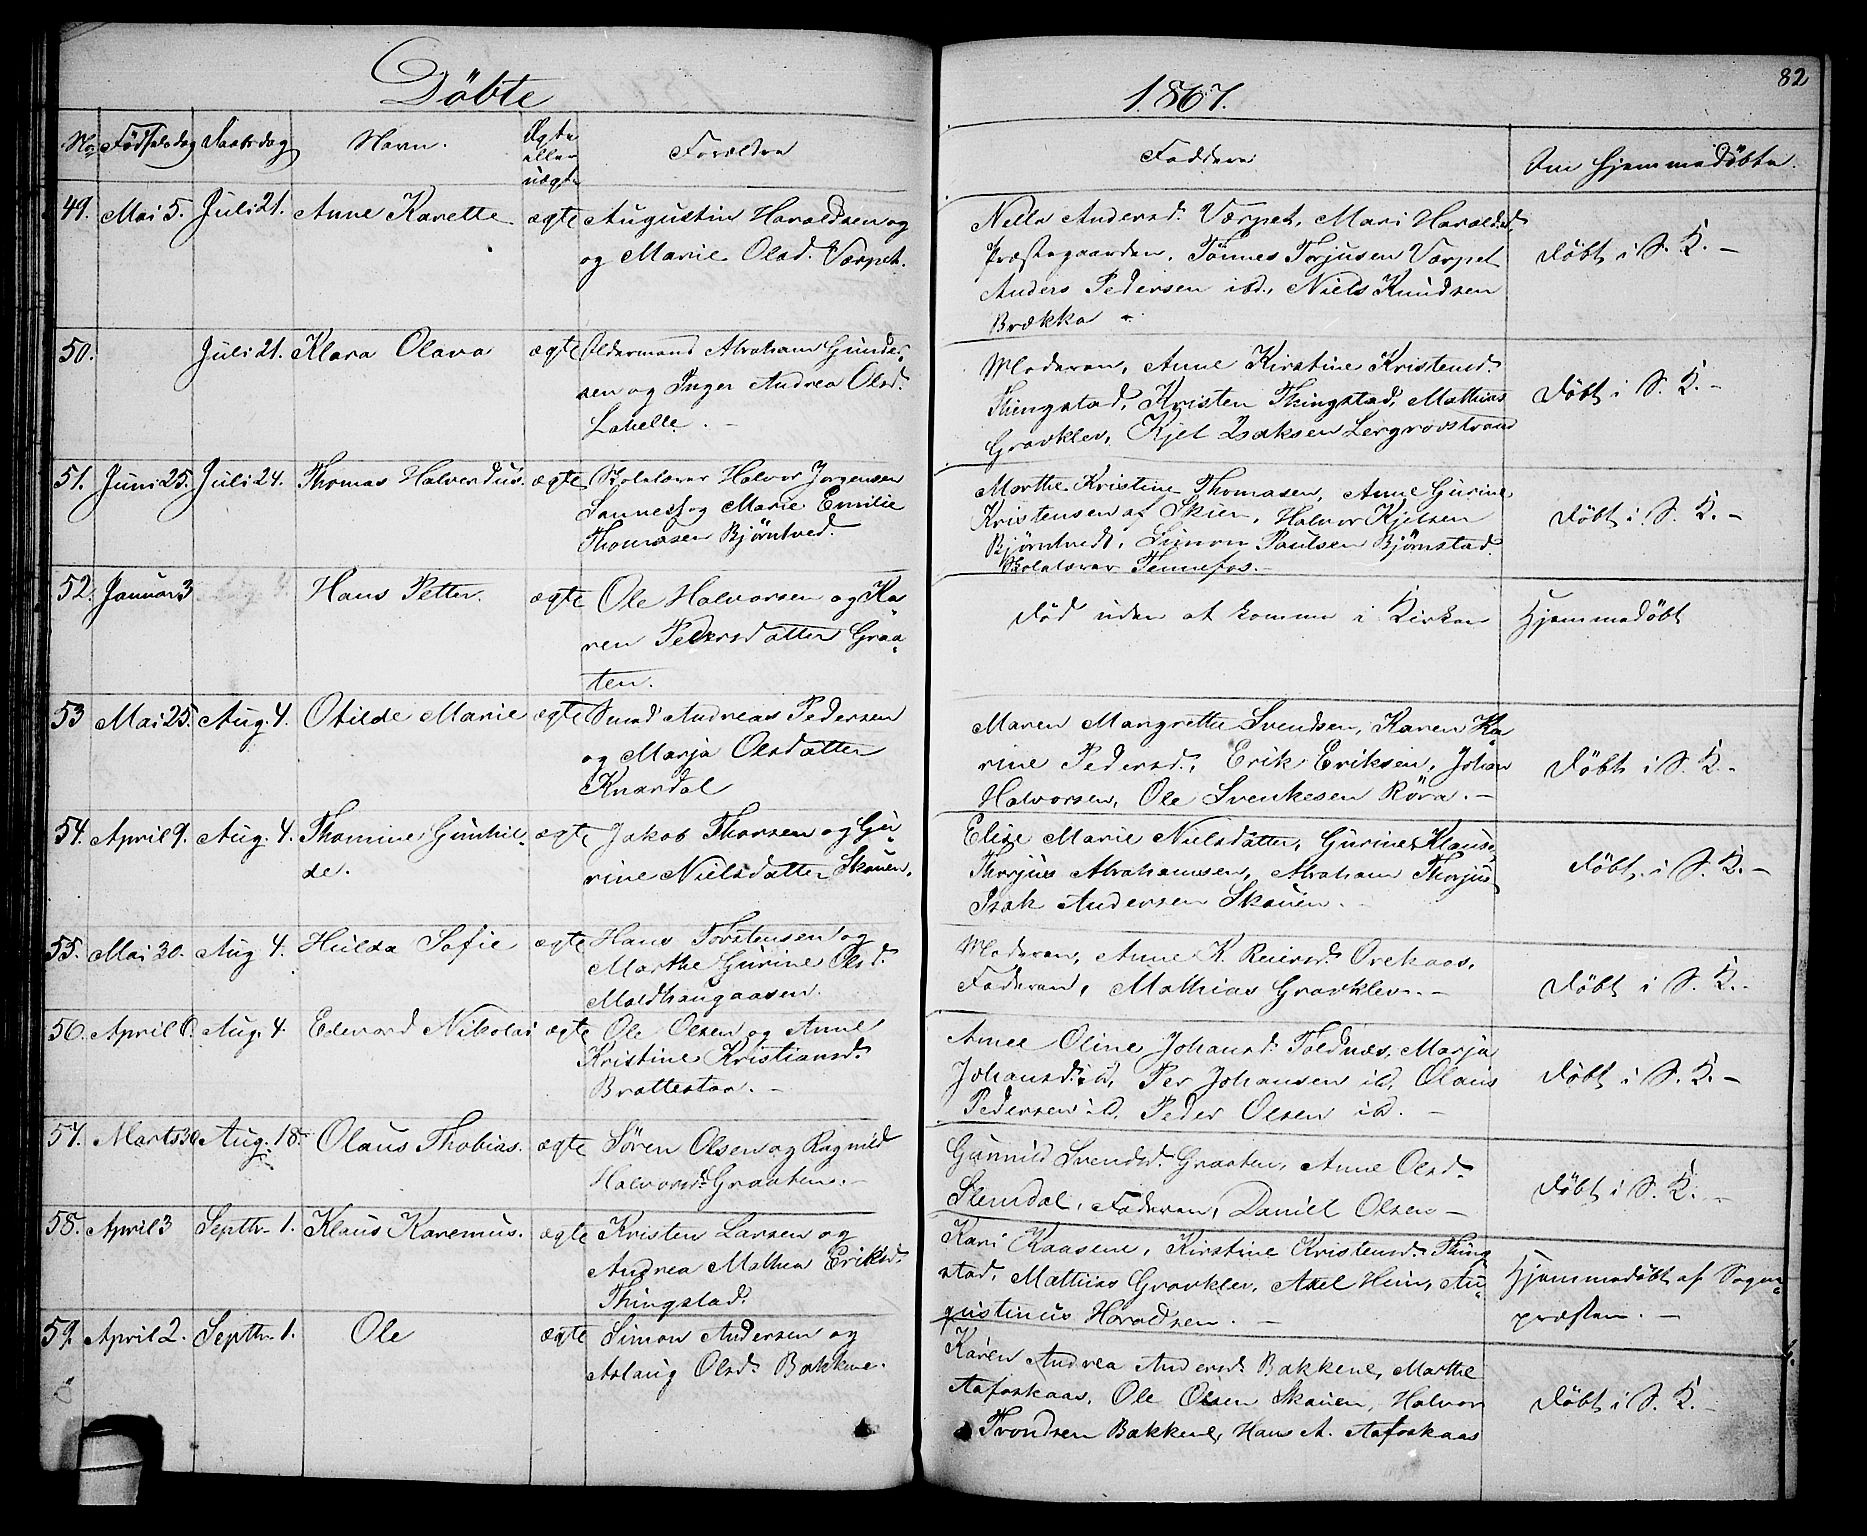 Döbte
1867.
82
No Fødselsdag Daabsdag Navn. Ægte eller uægte Forældre Faddere Om Hjemmedöbte.
49. Mai 5. Juli 21. Anne Karette ægte Augustin Haraldsen og
og Marie Olsd. Værpet.
Nella Andersd. Værpet, Mari Haraldsd.
Præstegaarden, Tönnes Torjusen Værpet
Anders Pedersen ibd., Niels Knudsen
Brække
Döbt i S. K. –
50. Juli 21. Klara Olava ægte Oldermand Abraham Gunder-
sen og Inger Andrea Olsd.
Labelle. –
Moderen, Anne Kirstine Kristensd.
Thingstad, Kristen Thingstad, Mathias
Gravklev, Kjel Isaksen Lergravstrand
Döbt i S. K. –
51. Juni 25. Juli 24. Thomas Halvordus. ægte Skolelærer Halvor Jorgensen
Sannes og Marie Emilie
Thomasen Bjørntved.
Marthe Kristine Thomasen, Anne Gurine
Kristensen af Skien, Halvor Kjelsen
Bjørntvedt, Simon Paulsen Bjørnstad.
Skolelærer Tennefos. –
Döbt i S. K. –
52. Januar 3 Hans Petter. ægte Ole Halvorsen og Ka-
ren Pedersdatter Graa-
ten.
Död uden at komme i Kirken
Hjemmedöbt
53 Mai 25. Aug. 4. Otilde Marie ægte Smed Andreas Pedersen
og Marja Olsdatter
Knardal
Maren Margrethe Svendsen, Karen Ka-
rine Pedersd., Erik Eriksen, Johan
Halvorsen, Ole Svenkesen Röra. –
Döbt i S. K. –
54. April 9. Aug. 4. Thomine Gunhil-
de. ægte Jakob Thorsen og Gu-
rine Nielsdatter Skauen.
Elise Marie Nielsdatter, Gurine Klausd.
Thorjus Abrahamsen, Abraham Thorjus-
Isak Andersen Skauen. –
Döbt. i S. K. –
55. Mai 30. Aug 4. Hulda Sofie ægte Hans Torstensen og
Marthe Gurine Olsd.
Moldhaugaasen.
Moderen, Anne K. Reiersd. Orekaas,
Faderen, Mathias Gravklev. –
Döbt i S. K. –
56. April 6. Aug. 4 Edevard Nikolai ægte Ole Olsen og Anne
Kristine Kristiansd.
Brattestaa. –
Anne Oline Johansd. Foldnæs, Marja
Johansd. id, Per Johansen id, Olaus
Pedersen id. Peder Olsen id. –
Döbt i S. K. –
57. Marts 30 Aug. 18. Olaus Thobias. ægte Søren Olsen og Ragnild
Halvorsd. Graaten. –
Gunnild Svendsd. Graaten, Anne Olsd.
Slemdal, Faderen, Daniel Olsen –
Döbt i S. K. –
58. April 3 Septbr. 1. Klaus Karemus. ægte Kristen Larsen og
Andrea Mathea Eriksd.
Thingstad.
Kari Kaasene, Kirstine Kristensd. Thing-
stad, Mathias Gravklev, Axel Hein, Au-
gustinus Haraldsen. –
Hjemmedöbt af Sogne-
præsten. –
59 April 2. Septbr. 1. Ole ægte Simon Andersen og
Aslaug Olsd. Bakkene.
Karen Andrea Andersd. Bakkene, Marthe
Aafoskaas, Ole Olsen Skauen, Halvor
Trondsen Bakkene, Hans A. Aafoskaas
Döbt i S. K. –